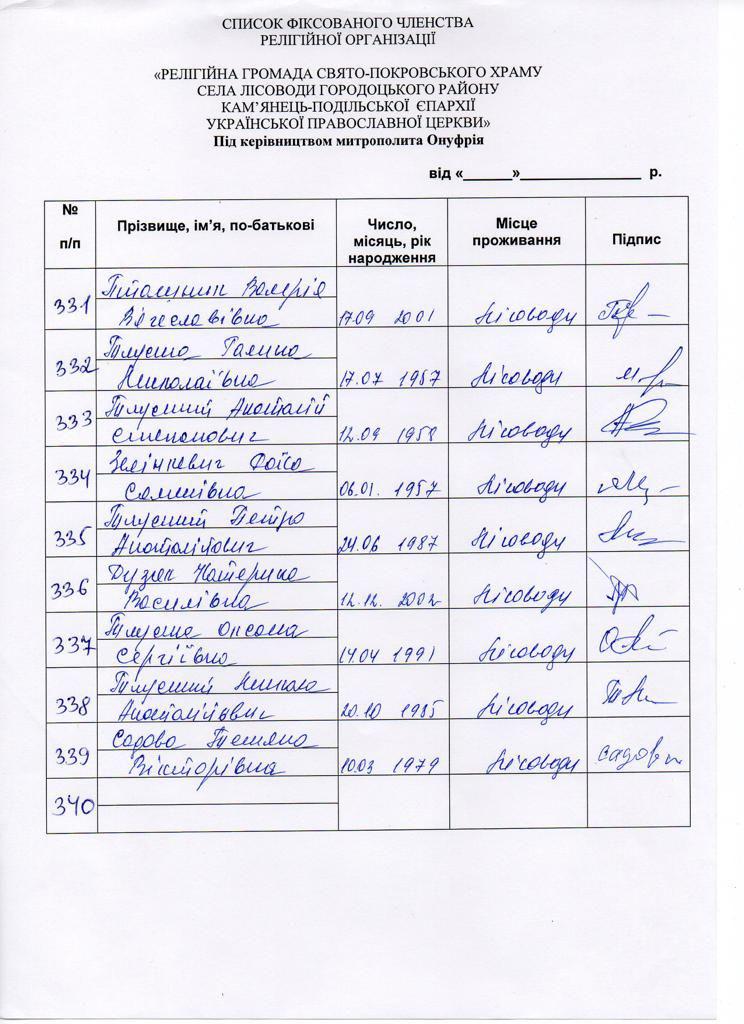 СПИСОК ФІКСОВАНОГО ЧЛЕНСТВА
РЕЛІГІЙНОЇ ОРГАНІЗАЦІЇ
«РЕЛІГІЙНА ГРОМАДА СВЯТО-ПОКРОВСЬКОГО ХРАМУ
СЕЛА ЛІСОВОДИ ГОРОДОЦЬКОГО РАЙОНУ
КАМ’ЯНЕЦЬ-ПОДІЛЬСЬКОЇ ЄПАРХІЇ
УКРАЇНСЬКОЇ ПРАВОСЛАВНОЇ ЦЕРКВИ»
Під керівництвом митрополита Онуфрія
від «______»_______________ р.
№ п/п Прізвище, ім’я, по-батькові Число, місяць, рік народження Місце проживання Підпис
331 Валерія
Вячеславівна 17.09 2001 Лісоводи
332 Галина
Миколаївна 17.07 1957 Лісоводи
333 Анатолій
Степанович 12.09 1958 Лісоводи
334 Зелінкевич Раїса
Семенівна 06.01. 1957 Лісоводи
335 Петро
Анатолійович 24.06 1987 Лісоводи
336 Катерина
Василівна 12.12. 2002 Лісоводи
337 Оксана
Сергіївна 14.04 1991 Лісоводи
338 Микола
Анатолійович 20.10 1985 Лісоводи
339 Садова Тетяна
Вікторівна 10.03 1979 Лісоводи
340